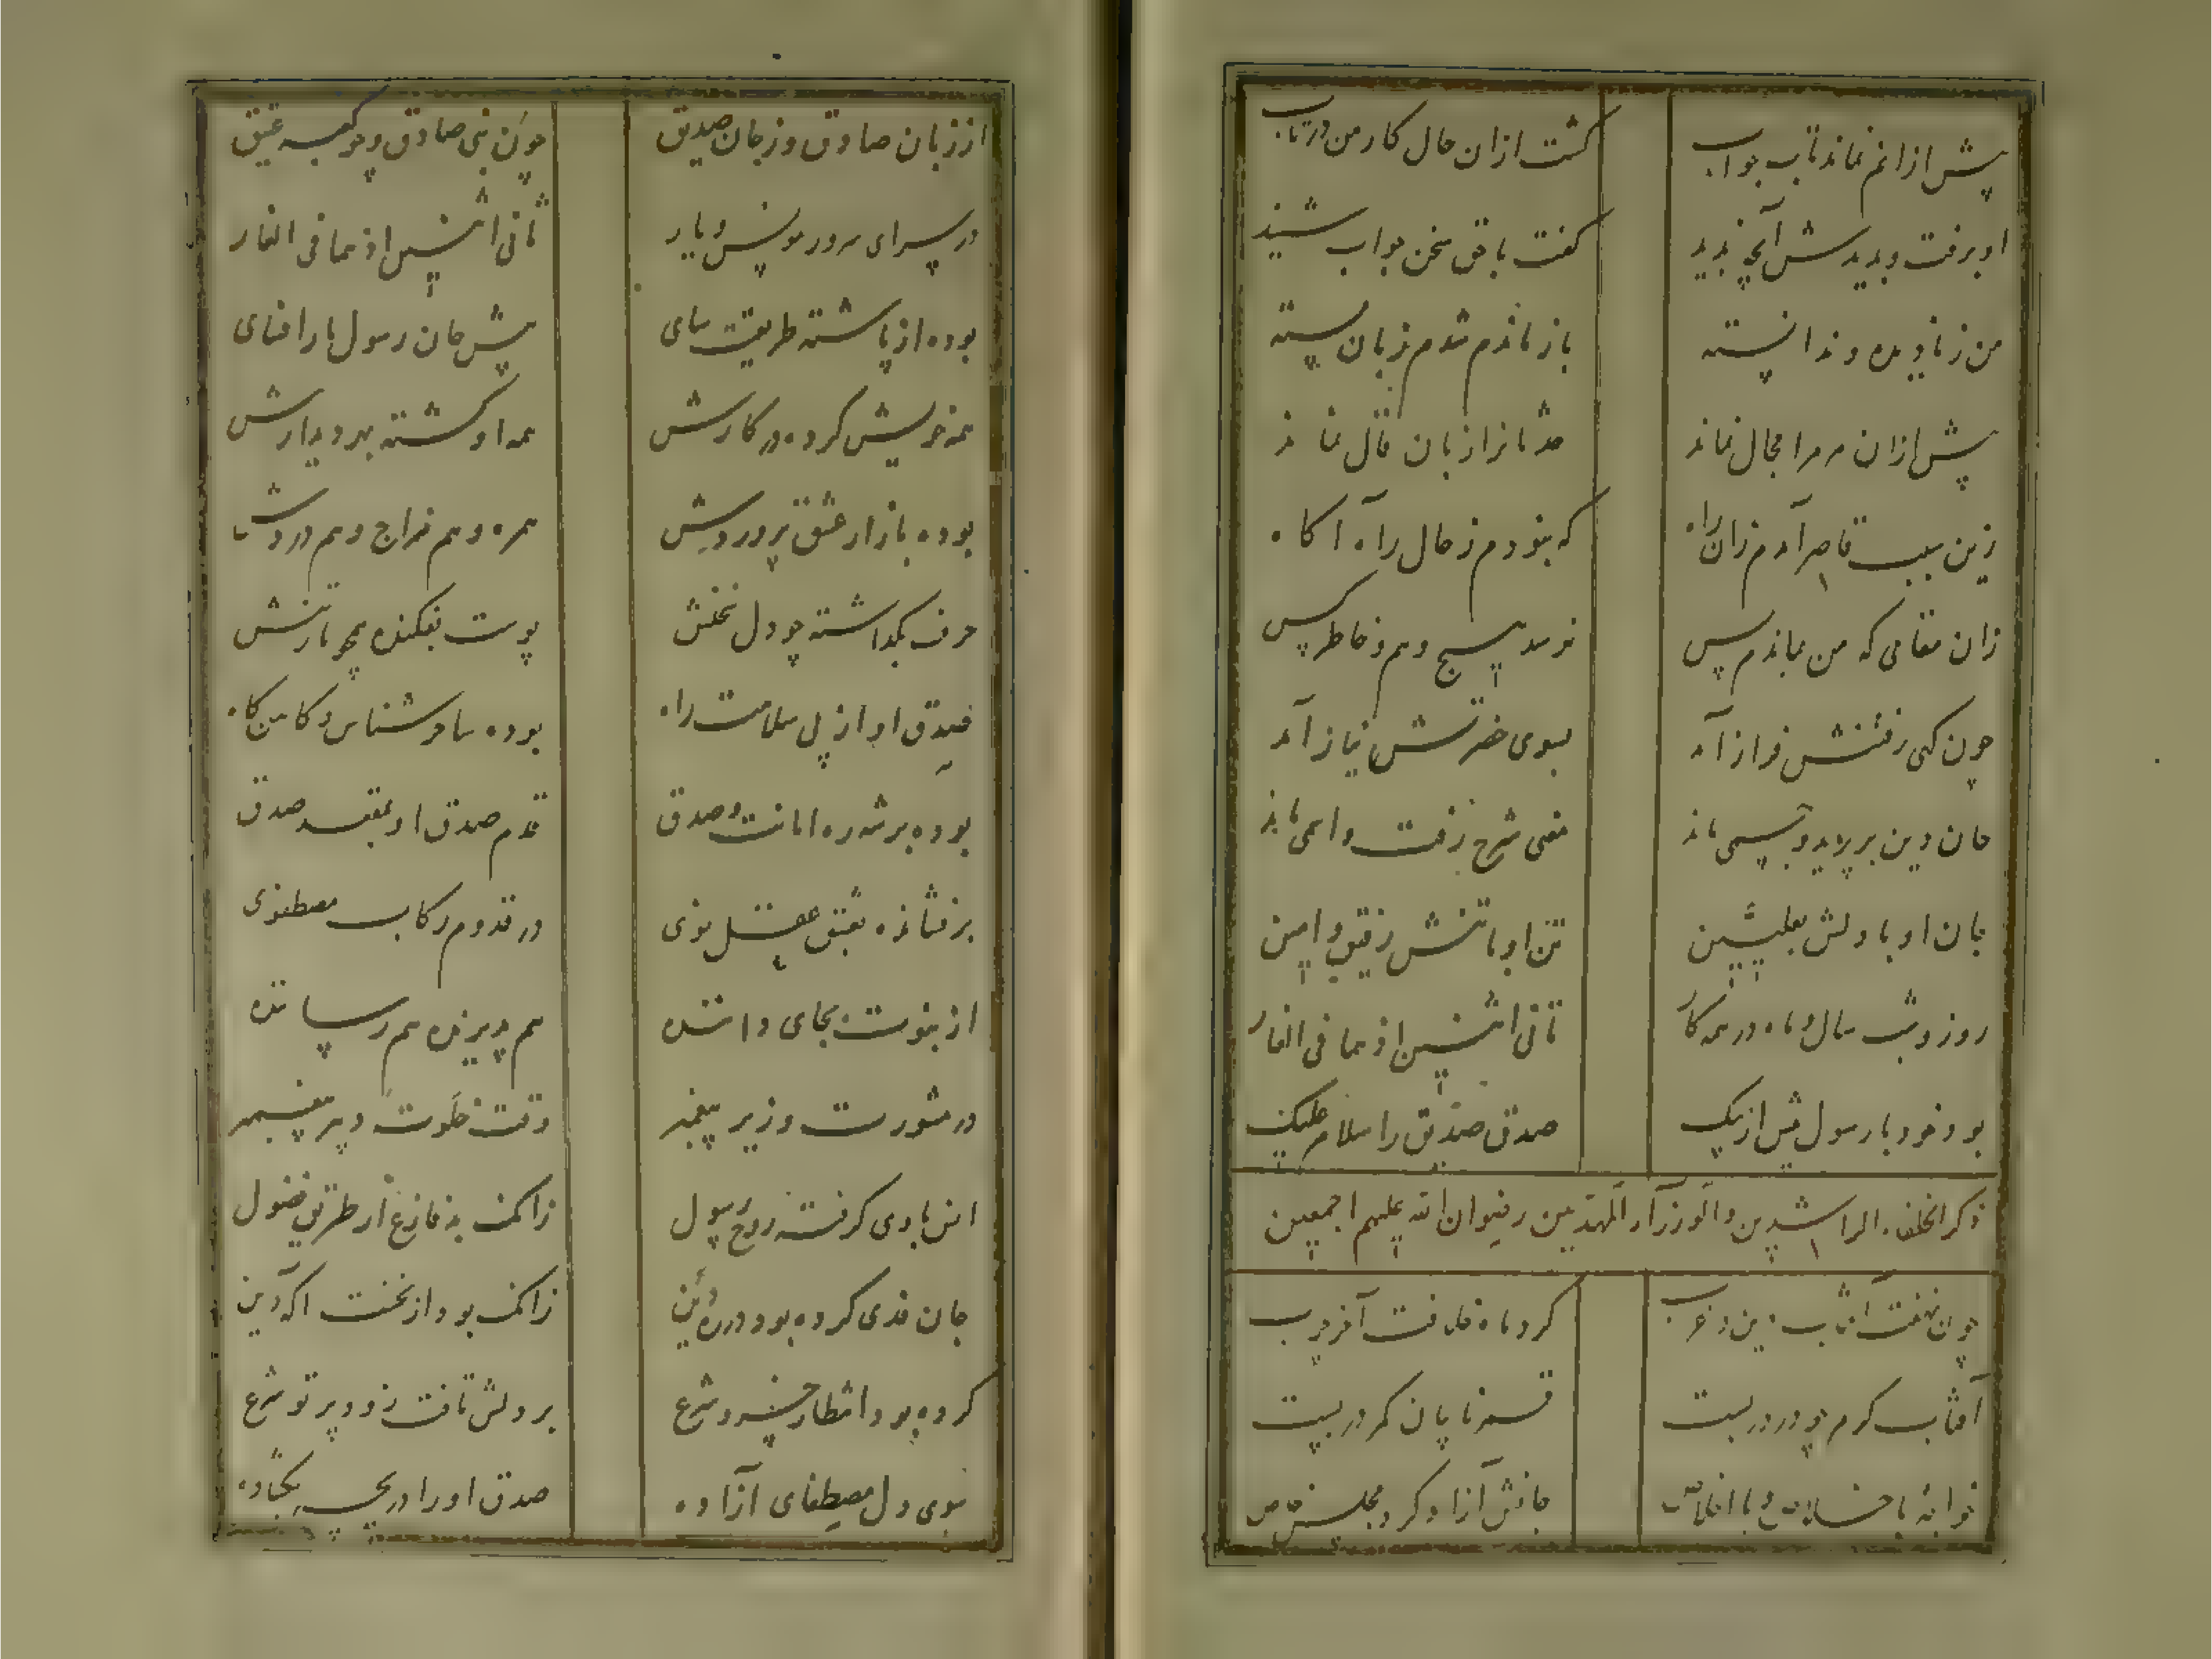 پیش ازانم نماند تاب جواب
گشت ازان حال کار من درتاب
او برفت و بدیدش آنچ ندید
گفت با حق سخن جواب شنید
من ز نادیده و ندانسته
باز ماندم شدم زبان بسته
پیش ازان مر مرا مجال نماند
مر زبانرا زبان قال نماند
زین سبب قاصر آمدم زان راه
که نبودم ز حال راه آکاه
زان مقامی که من بماندم پس
نرسد هیچ وهم و خاطر کس
چون کهی رفتنش فراز آمد
بسوی حضرتش نیاز آمد
جان دین بر پرید و جسمی ماند
معنی شرح رفت واسمی ماند
جان او با دلش بعلیین
تن او با تنش رفیق و امین
روز و شب سال و ماه در همه کار
ثانی اثنین اذهما فی الغار
بود خود با رسول پیش از پیک
صدق صدیق را سلام علیک
ذکر الخلفاء الراشدین والوزرآء المهتدین رضوان الله علیهم اجمعین
چون نهفت افتاب دین در غرب
کرد ماه خلافت آخر چرب
آفتاب کرم چو در دربست
قمر تا پان کمر دربست
خوانهٔ با و با اخلاص
جانش آزاد کرد مجلس خاص
از زبان صادق وز جان صدیق
چون نبی صادق و چو کعبه عتیق
در سرای سرور مونس و یار
ثانی اثنین اذهما فی الغار
بوده از پاشنه طریقت سای
پیش جان رسول بار افنای
همه خویش کرده در کارش
همه او گشته بهر دیدارش
بوده بازار عشق پرور دیش
همره و هم مزاج و هم دردش
حرف بگذاشته چو دل نخنش
پوست بفکنده همچو نار تنش
صدق او از پی سلامت راه
بوده ساحر شناس و کاهن کاه
بوده برشه ره امانت و صدق
قدم صدق او بمقعد صدق
برفشانده بعشق عقل نوی
در قدوم رکاب مصطفوی
از نبوت بجای داننده
هم پریزنده هم رساننده
در مشورت وزیر پیغمبر
وقت خلوت دبیر پیغمبر
انس با وی کرفته روح رسول
زانکه بد فارغ از طریق فضول
جان فدی کرده بود در ره دین
زانکه بود از نخست اکه دین
کرده بود انتظار خسرو شرع
بر دلش تافت زود پرتو شرع
سوی دل مصطفای آزاده
صدق او را دریچه بکشاده